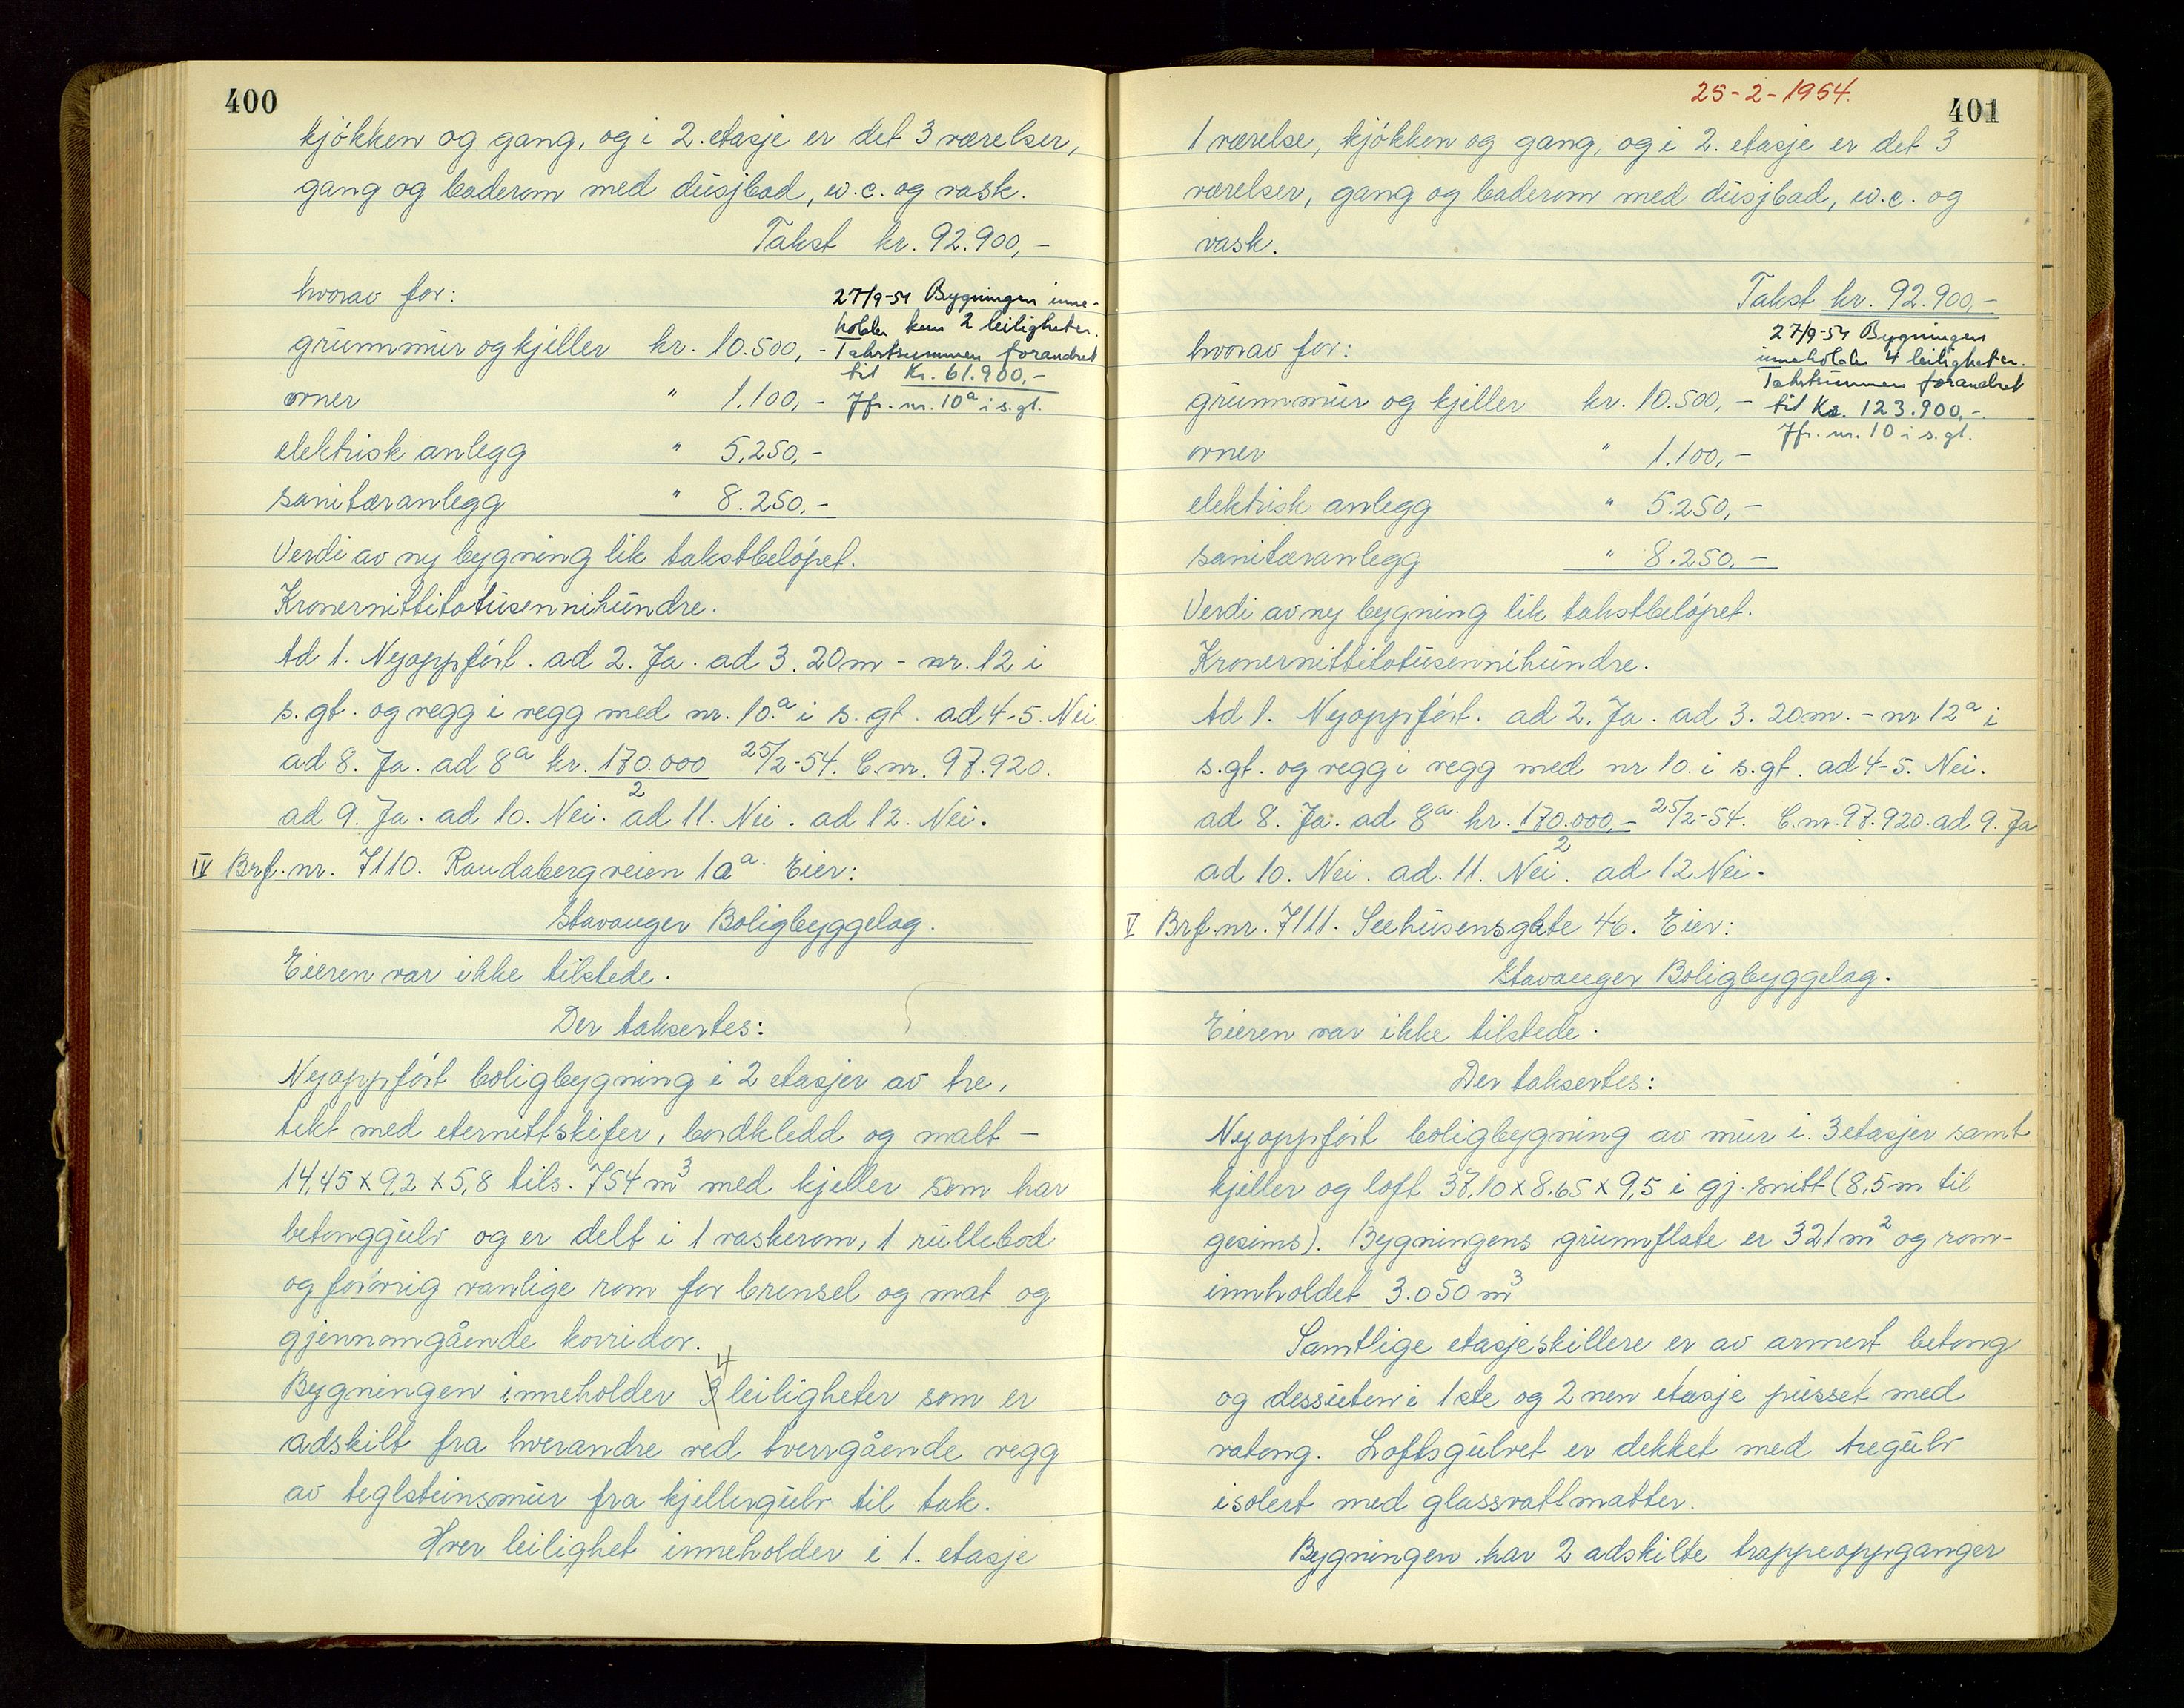 400
kjökken og gang, og i 2. etasje er det 3 værelser,
gang og baderom med dusjbad, w.c. og vask.
Takst kr. 92.900,-
hvorav for:
27/9-54 Bygningen inne-
holder kun 2 leiligheter.
grunnmur og kjeller kr. 10.500,-
Takstsummen forandret
til Kr. 61.900,-
ovner " 1.100,-
Jfr. nr. 10a i s.gt.
elektrisk anlegg " 5.250,-
sanitæranlegg " 8.250,-
Verdi av ny bygning lik takstbelöpet.
Kronernittitotusennihundre.
Ad 1. Nyoppfört. ad 2. Ja. ad 3. 20m - nr. 12 i
s.gt. og vegg i vegg med nr. 10a i s.gt. ad 4-5. Nei.
ad 8. Ja. ad 8a kr. 170.000 25/2-54. C.nr. 97.920.
2
ad 9. Ja. ad 10. Nei. ad 11. Nei. ad 12. Nei.
IV Brf.nr. 7110. Raudabergveien 10a. Eier:
Stavanger Boligbyggelag.
Eieren var ikke tilstede.
Der taksertes:
Nyoppfört boligbygning i 2 etasjer av tre,
tekt med eternittskifer, bordkledd og malt -
14,45 x 9,2 x 5,8 tils. 754 m3 med kjeller som har
betonggulv og er delt i 1 vaskerom, 1 rullebod
og forövrig vanlige rom for brensel og mat og
gjennomgående korridor.
4
Bygningen inneholder 3 leiligheter som er
adskilt fra hverandre ved tverrgående vegg
av teglsteinsmur fra kjellergulv til tak.
Hver leilighet inneholder i 1. etasje
25-2-1954.
401
1 værelse, kjökken og gang, og i 2. etasje er det 3
værelser, gang og baderom med dusjbad, w.c. og
vask.
Takst kr. 92.900,-
27/9-54 Bygningen
hvorav for:
inneholder 4 leiligheter.
Takstsummen forandret
grunnmur og kjeller kr. 10.500,-
til Kr. 123.900,-.
Jfr. nr. 10 i s.gt.
ovner " 1.100,-
elektrisk anlegg " 5.250,-
sanitæranlegg " 8.250,-
Verdi av ny bygning lik takstbelöpet.
Kronernittitotusennihundre.
Ad 1. Nyoppfört. ad 2. Ja. ad 3. 20m. - nr 12a i
s.gt. og vegg i vegg med nr 10. i s.gt. ad 4-5. Nei.
ad 8. Ja. ad 8a. kr. 170.000,- 25/2-54. C.nr. 97.920. ad 9. Ja
2
ad 10. Nei. ad. 11. Nei. ad 12 Nei.
V Brf.nr. 7111. Seehusensgate 46. Eier:
Stavanger Boligbyggelag.
Eieren var ikke tilstede.
Der taksertes:
Nyoppfört boligbygning av mur i. 3 etasjer samt
kjeller og loft 37.10 x 8.65 x 9,5 i gj.snitt (8,5 m til
gesims). Bygningens grunnflate er 321 m2 og rom-
innholdet 3.050 m3
Samtlige etasjeskillere er av armert betong
og dessuten i 1ste og 2nen etasje pusset med
vatong. Loftsgulvet er dekket med tregulv
isolert med glassvattmatter.
Bygningen har 2 adskilte trappeoppganger